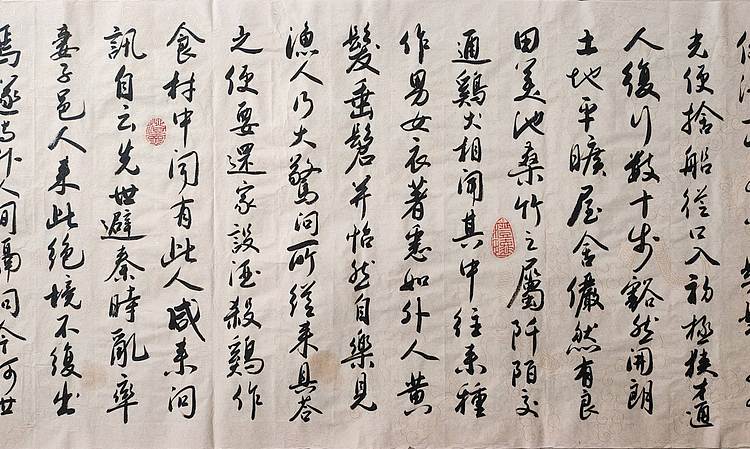 光便捨船從口入初極狹才通
人復行數十步豁然開朗
土地平曠屋舍儼然有良
田美池桑竹之屬阡陌交
通鷄犬相聞其中往來種
作男女衣著悉如外人黄
髮垂髫并怡然自樂見
漁人乃大驚問所從來具荅
之便要還家設酒殺鷄作
食村中聞有此人咸來問
訊自云先世避秦時亂率
妻子邑人來此絶境不復出
焉遂与外人間隔問今何世